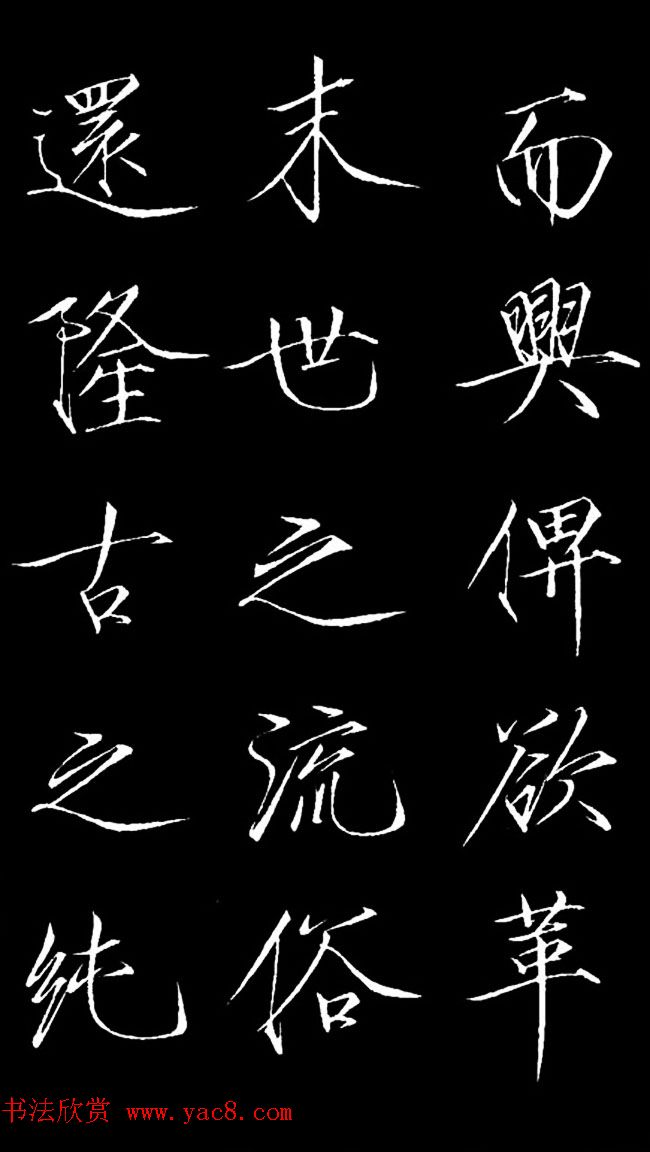 而興俾欲革
末世之流俗
還隆古之纯
书法欣赏 www.yac8.com